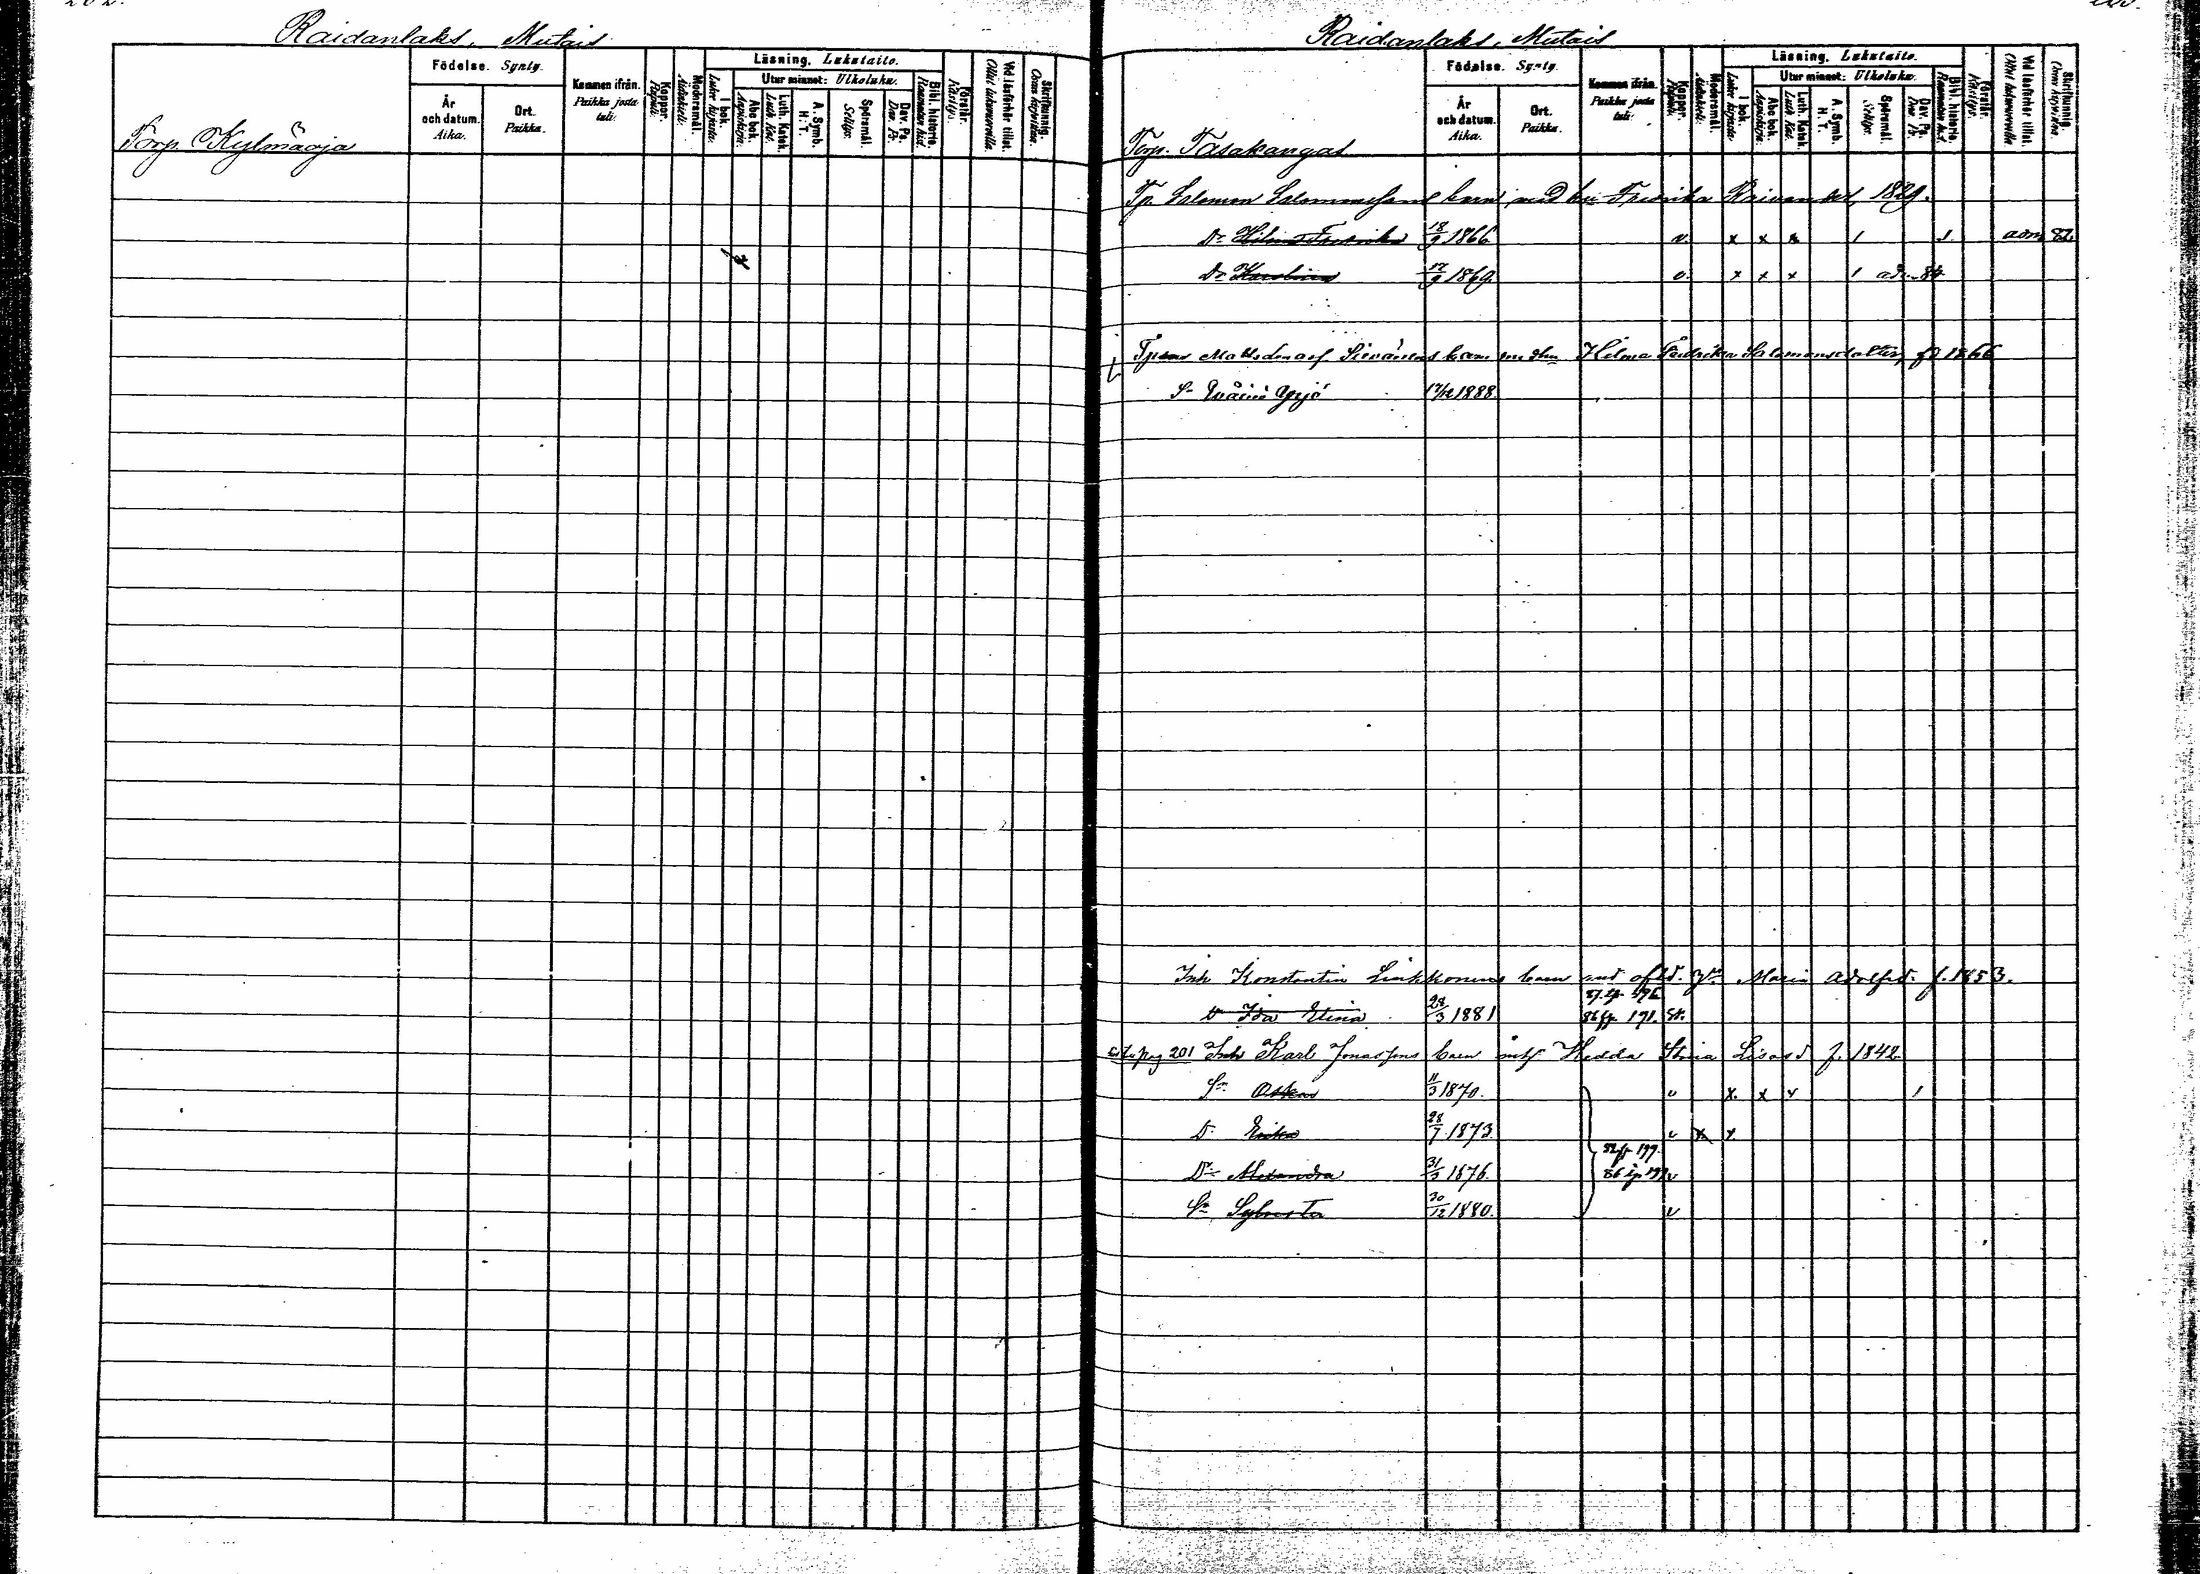 202.
Raidanlaks. Mutais
Födelse. Synty.
År och datum. Aika.
Ort. Paikka.
Kommen ifrån. Paikka josta tuli:
Koppor. Rupuli.
Modersmål. Äidinkieli:
Läsning. Lukutaito.
I bok. Lukee kirjasta.
Utur minnet: Ulkoluku.
Abc bok. Aapiskirja.
Luth. Katek. Luth. Kat.
A. Symb. H. T.
Spörsmål. Selitys.
Dav. Ps. Dav. Ps.
Bibl. historie. Raamatun hist.
Förstår. Käsitys.
Vid läsförhör tillst. Ollut lukuvuorolla.
Skriftkunnig. Osaa kirjoittaa.
Torp. Kylmäoja
Raidanlaks, Mutais
Födelse. Synty.
År och datum. Aika.
Ort. Paikka.
Kommen ifrån. Paikka josta tuli:
Koppor. Rupuli.
Modersmål. Äidinkieli:
Läsning. Lukutaito.
I bok. Lukee kirjasta.
Utur minnet: Ulkoluku.
Abc bok. Aapiskirja.
Luth. Katek. Luth. Kat.
A. Symb. H. T.
Spörsmål. Selitys.
Dav. Ps. Dav. Ps.
Bibl. historie. Raamatun hist.
Förstår. Käsitys.
Vid läsförhör tillst.
Skriftkunnig.
Torp. Tasakangas
Tp. Salomon Salomonsson barn med hu Fredrika 1829.
Dr Hilma Fredrika 18/9 1866 v. x x x 1 1 adm 82
Dr Karolina 17/9 1869. v. x x x 1 adm 84
Matts barn med hu Hilma Fredrika Salomonsdotter, fd 1866
Sn Yrjö 17/12 1888.
Inh Konstantin Linkkonens barn med Maria Adolfsd. f. 1853.
D Ida Stina 28/3 1881 86 fr 191. St.
pag 201 Inh Karl Jonassons barn m hu Hedda Stina f. 1842
Sn Oskar 11/3 1870. v x. x x 1
D. Erika 28/7 1873. v x x
Dr Alexandra 31/3 1876. 86 ip 199 v
Sn Sylvesta 30/12 1880. v